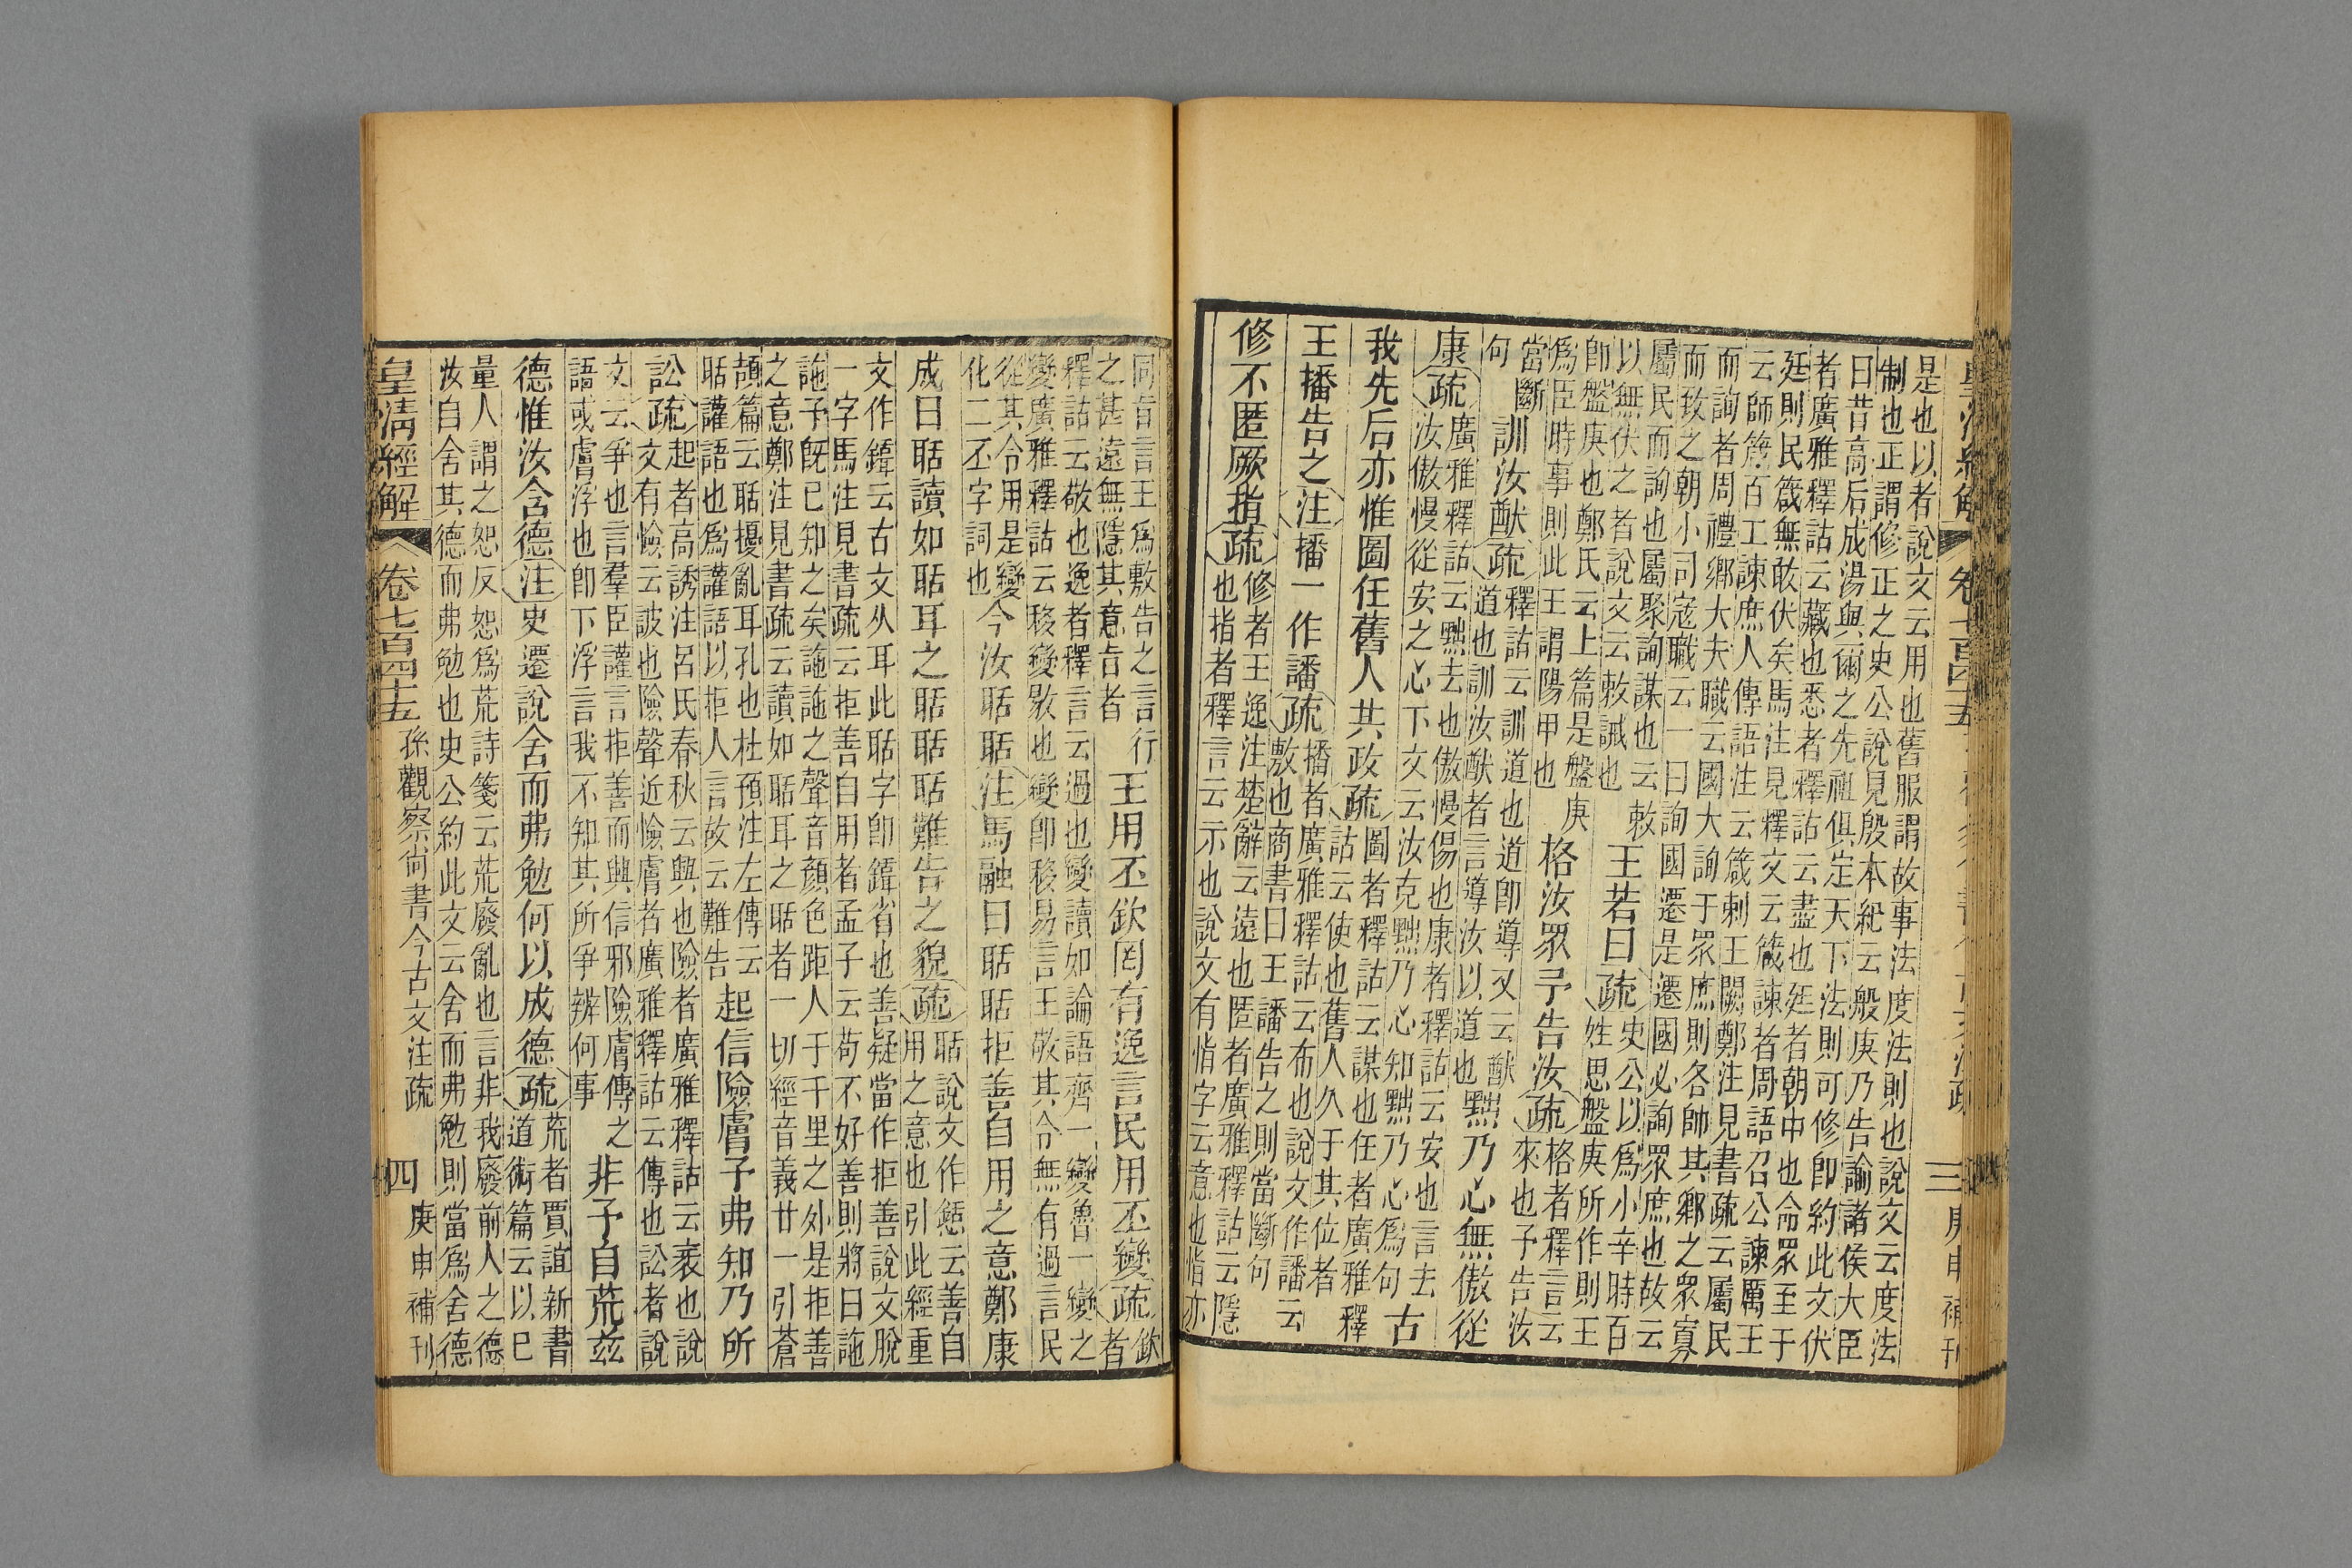 是也以者說文云用也舊服謂故事法度法則也說文云度法
制也正謂修正之史公說見殷本紀云般庚乃告諭諸侯大臣
曰昔高后成湯與爾之先祖俱定天下法則可修卽約此文伏
者廣雅釋詁云藏也悉者釋詁云盡也廷者朝中也命眾至于
廷則民箴無敢伏矣馬注見釋文云箴諫者周語召公諫厲王
云師箴百工諫庶人傳語注云箴刺王闕鄭注見書疏云屬民
而詢者周禮鄉大夫職云國大詢于眾庶則各帥其鄉之眾寡
而致之朝小司寇職云一曰詢國遷是遷國必詢眾庶也故云
屬民而詢也屬聚詢謀也云敕
以無伏之者說文云敕誡也
王若曰疏
史公以爲小辛時百
姓思盤庚所作則王
卽盤庚也鄭氏云上篇是盤庚
爲臣時事則此王謂陽甲也
格汝眾予告汝疏
格者釋言云
來也予告汝
當斷
句
訓汝猷疏
釋詁云訓道也道卽導又云猷
道也訓汝猷者言導汝以道也
黜乃心無傲從
康疏
廣雅釋詁云黜去也傲慢傷也康者釋詁云安也言去
汝傲慢從安之心下文云汝克黜乃心知黜乃心爲句
古
我先后亦惟圖任舊人共政疏
圖者釋詁云謀也任者廣雅釋
詁云使也舊人久于其位者
王播告之注播一作譒疏
播者廣雅釋詁云布也說文作譒云
敷也商書曰王譒告之則當斷句
修不匿厥指疏
修者王逸注楚辭云遠也匿者廣雅釋詁云隱
也指者釋言云示也說文有恉字云意也恉亦
三
庚申補刊
同旨言王爲敷告之言行
之甚遠無隱其意旨者
王用丕欽罔有逸言民用丕變疏
欽
者
釋詁云敬也逸者釋言云過也變讀如論語齊一變魯一變之
變廣雅釋詁云移變敭也變卽移易言王敬其令無有過言民
從其令用是變
化二丕字詞也
今汝聒聒注馬融曰聒聒拒善自用之意鄭康
成曰聒讀如聒耳之聒聒聒難告之貌疏
聒說文作懖云善自
用之意也引此經重
文作𦧯云古文从耳此聒字卽𦧯省也善疑當作拒善說文脫
一字馬注見書疏云拒善自用者孟子云苟不好善則將曰訑
訑予旣已知之矣訑訑之聲音顏色距人于千里之外是拒善
之意鄭注見書疏云讀如聒耳之聒者一切經音義廿一引蒼
頡篇云聒擾亂耳孔也杜預注左傳云
聒讙語也爲讙語以拒人言故云難告
起信險膚予弗知乃所
訟疏
起者高誘注呂氏春秋云興也險者廣雅釋詁云衺也說
文有憸云詖也險聲近憸膚者廣雅釋詁云傳也訟者說
文云爭也言羣臣讙言拒善而興信邪險膚傳之
語或膚浮也卽下浮言我不知其所爭辨何事
非予自荒茲
德惟汝含德注史遷說舍而弗勉何以成德疏
荒者賈誼新書
道術篇云以已
量人謂之恕反恕爲荒詩箋云荒廢亂也言非我廢前人之德
汝自舍其德而弗勉也史公約此文云舍而弗勉則當爲舍德
皇清經解
卷七百四十五
孫觀察尙書今古文注疏
四
庚申補刊